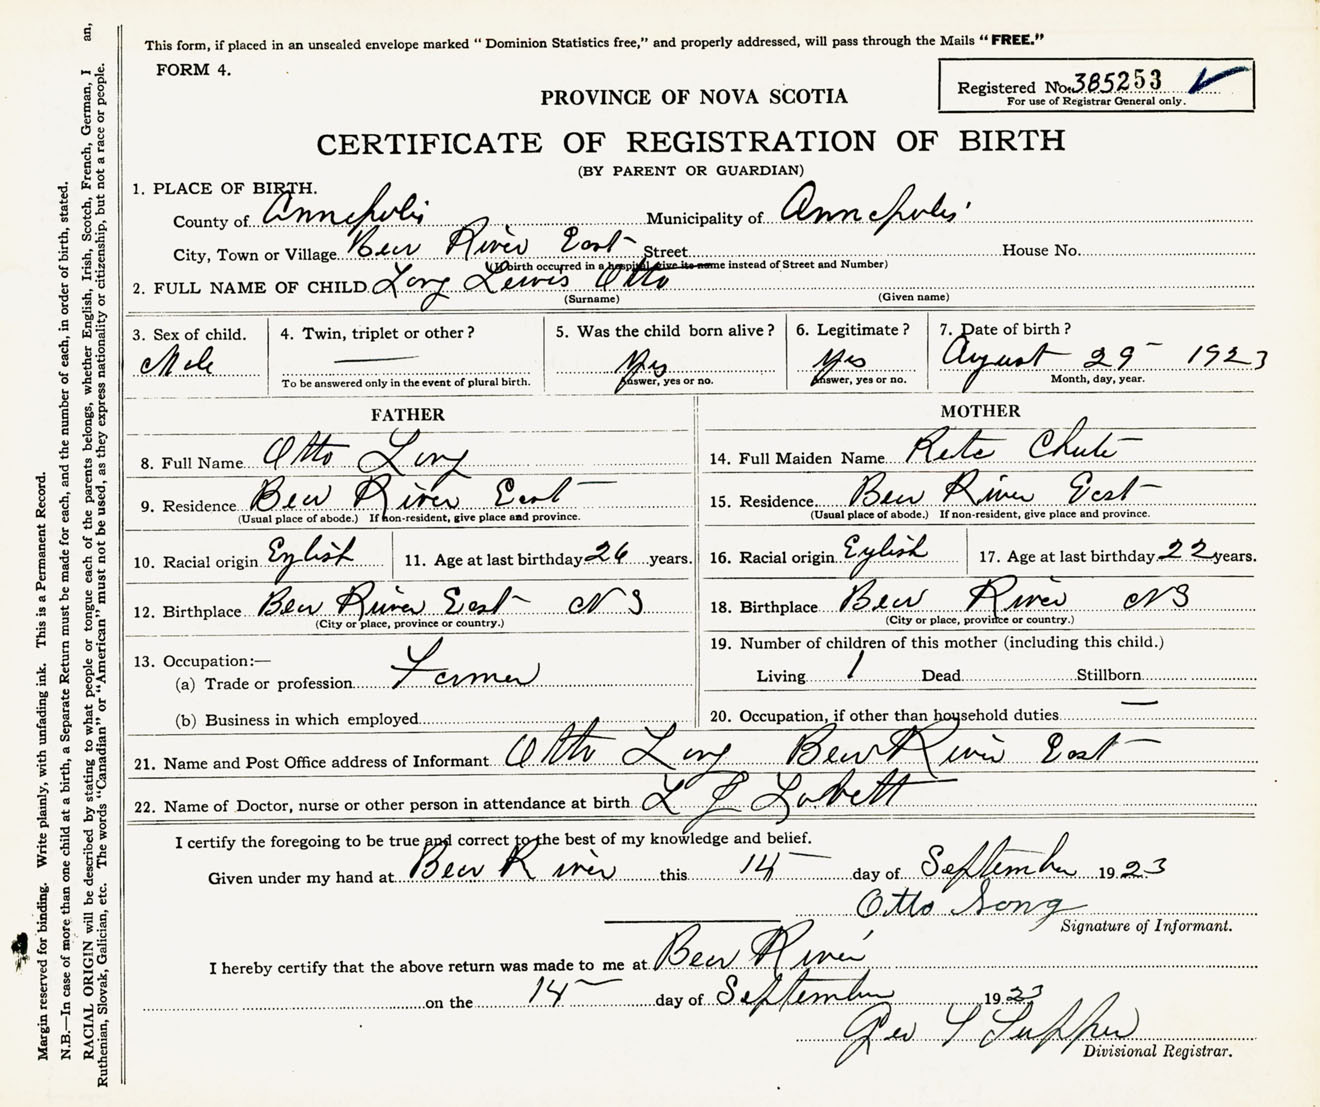 This form, if placed in an unsealed envelope marked “ Dominion Statistics free,” and properly addressed, will pass through the Mails “FREE.”
FORM 4.
Registered No. 385253
For use of Registrar General only.
PROVINCE OF NOVA SCOTIA
CERTIFICATE OF REGISTRATION OF BIRTH
(BY PARENT OR GUARDIAN)
1. PLACE OF BIRTH.
County of Annapolis Municipality of Annapolis
City, Town or Village Bear River East Street House No.
(If birth occurred in a hospital give its name instead of Street and Number)
2. FULL NAME OF CHILD Long Lewis Otto
(Surname) (Given name)
3. Sex of child. 4. Twin, triplet or other? 5. Was the child born alive? 6. Legitimate? 7. Date of birth?
Male — Yes Yes August 29 1923
To be answered only in the event of plural birth. Answer, yes or no. Answer, yes or no. Month, day, year.
FATHER
8. Full Name Otto Long
9. Residence Bear River East
(Usual place of abode.) If non-resident, give place and province.
10. Racial origin English 11. Age at last birthday 26 years.
12. Birthplace Bear River East N S
(City or place, province or country.)
13. Occupation:—
(a) Trade or profession Farmer
(b) Business in which employed
MOTHER
14. Full Maiden Name Reta Chute
15. Residence Bear River East
(Usual place of abode.) If non-resident, give place and province.
16. Racial origin English 17. Age at last birthday 22 years.
18. Birthplace Bear River NS
(City or place, province or country.)
19. Number of children of this mother (including this child.)
Living 1 Dead Stillborn
20. Occupation, if other than household duties —
21. Name and Post Office address of Informant Otto Long Bear River East
22. Name of Doctor, nurse or other person in attendance at birth L J Lovett
I certify the foregoing to be true and correct to the best of my knowledge and belief.
Given under my hand at Bear River this 14 day of September 1923
Otto Long
Signature of Informant.
I hereby certify that the above return was made to me at Bear River
on the 14 day of September 1923
Geo
Divisional Registrar.
Margin reserved for binding. Write plainly, with unfading ink. This is a Permanent Record.
N.B.—In case of more than one child at a birth, a Separate Return must be made for each, and the number of each, in order of birth, stated.
RACIAL ORIGIN will be described by stating to what people or tongue each of the parents belongs, whether English, Irish, Scotch, French, German, I an,
Ruthenian, Slovak, Galician, etc. The words “Canadian” or “American” must not be used, as they express nationality or citizenship, but not a race or people.